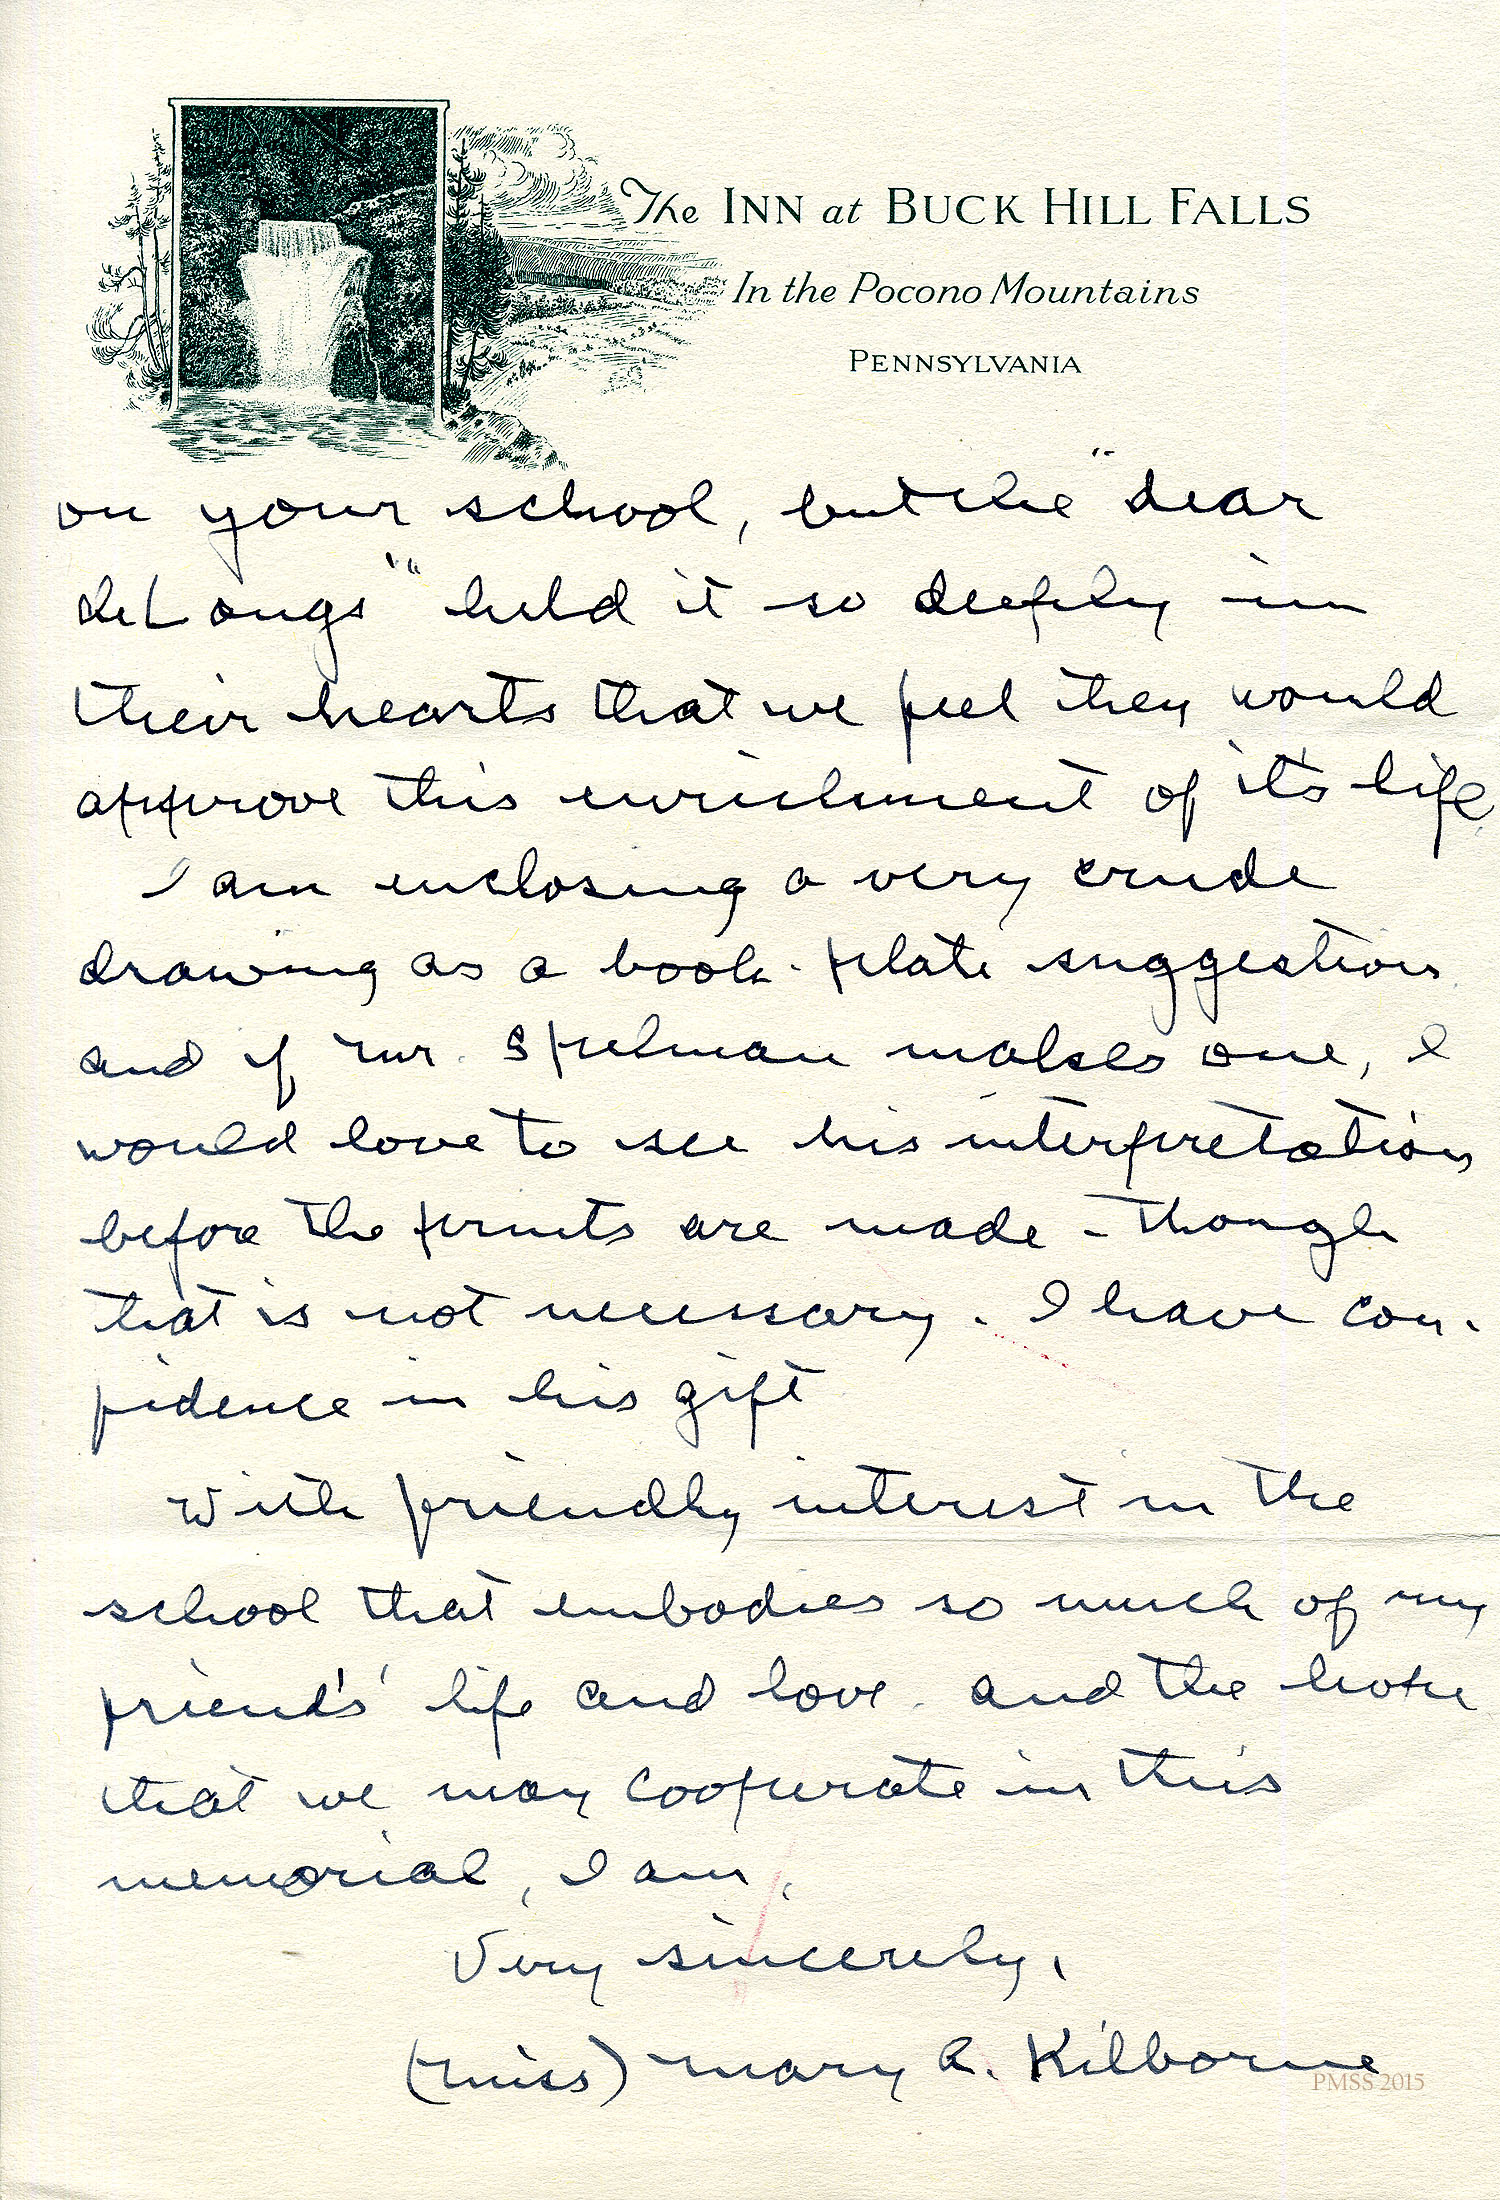 The INN at BUCK HILL FALLS
In the Pocono Mountains
PENNSYLVANIA
on your school, but the "dear
deLongs" held it so deeply in
their hearts that we feel they would
approve this enrichment of it's life.
I am enclosing a very crude
drawing as a book-plate suggestion
and if Mr. Spelman makes one, I
would love to see his interpretation
before the prints are made - though
that is not necessary. I have con-
fidence in his gift
With friendly interest in the
school that embodies so much of my
friend's' life and love and the hope
that we may cooperate in this
memorial, I am,
Very sincerely,
(Miss) Mary A. Kilborne
PMSS 2015